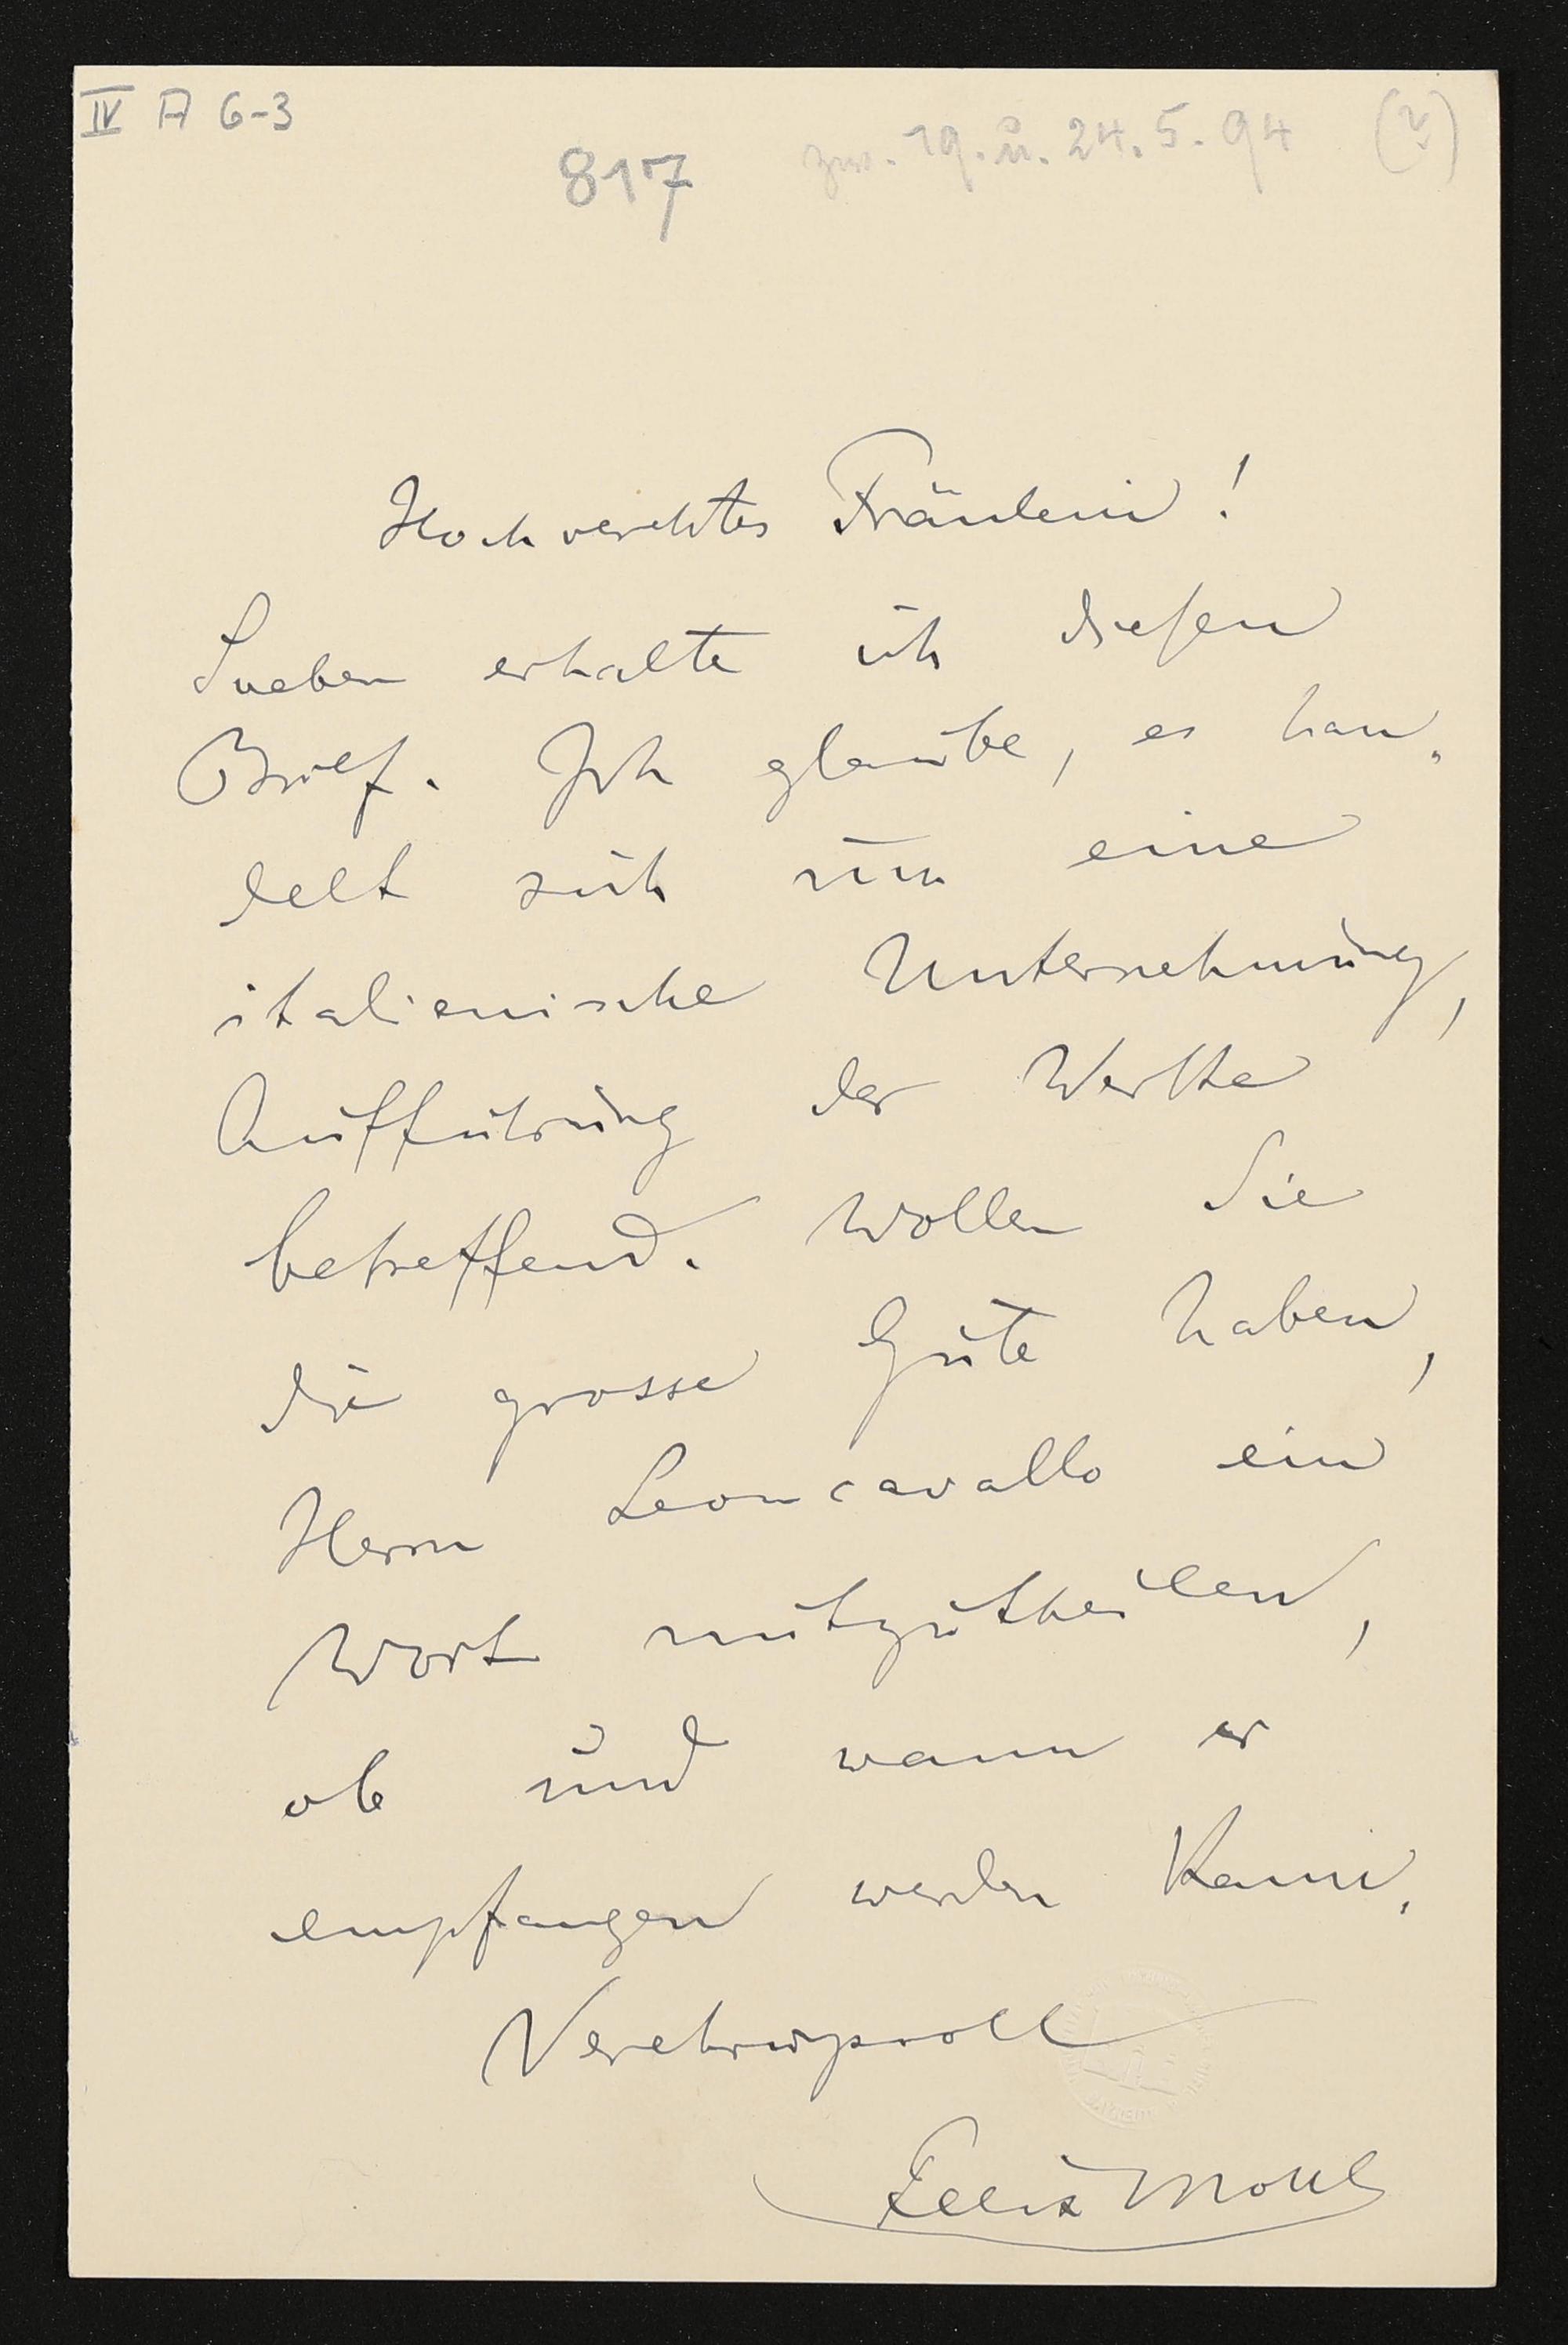 IV A 6-3
817
zw. 19. u. 24. 5. 94 (?)
Hochverehrtes Fräulein!
Soeben erhalte ich diesen
Brief. Ich glaube, es han-
delt sich um eine
italienische Unternehmung,
Aufführung der Werke
betreffend. Wollen Sie
die grosse Güte haben,
Herrn Leoncavallo ein
Wort mitzutheilen,
ob und wann er
empfangen werden kann.
Verehrungsvoll
Felix Mottl